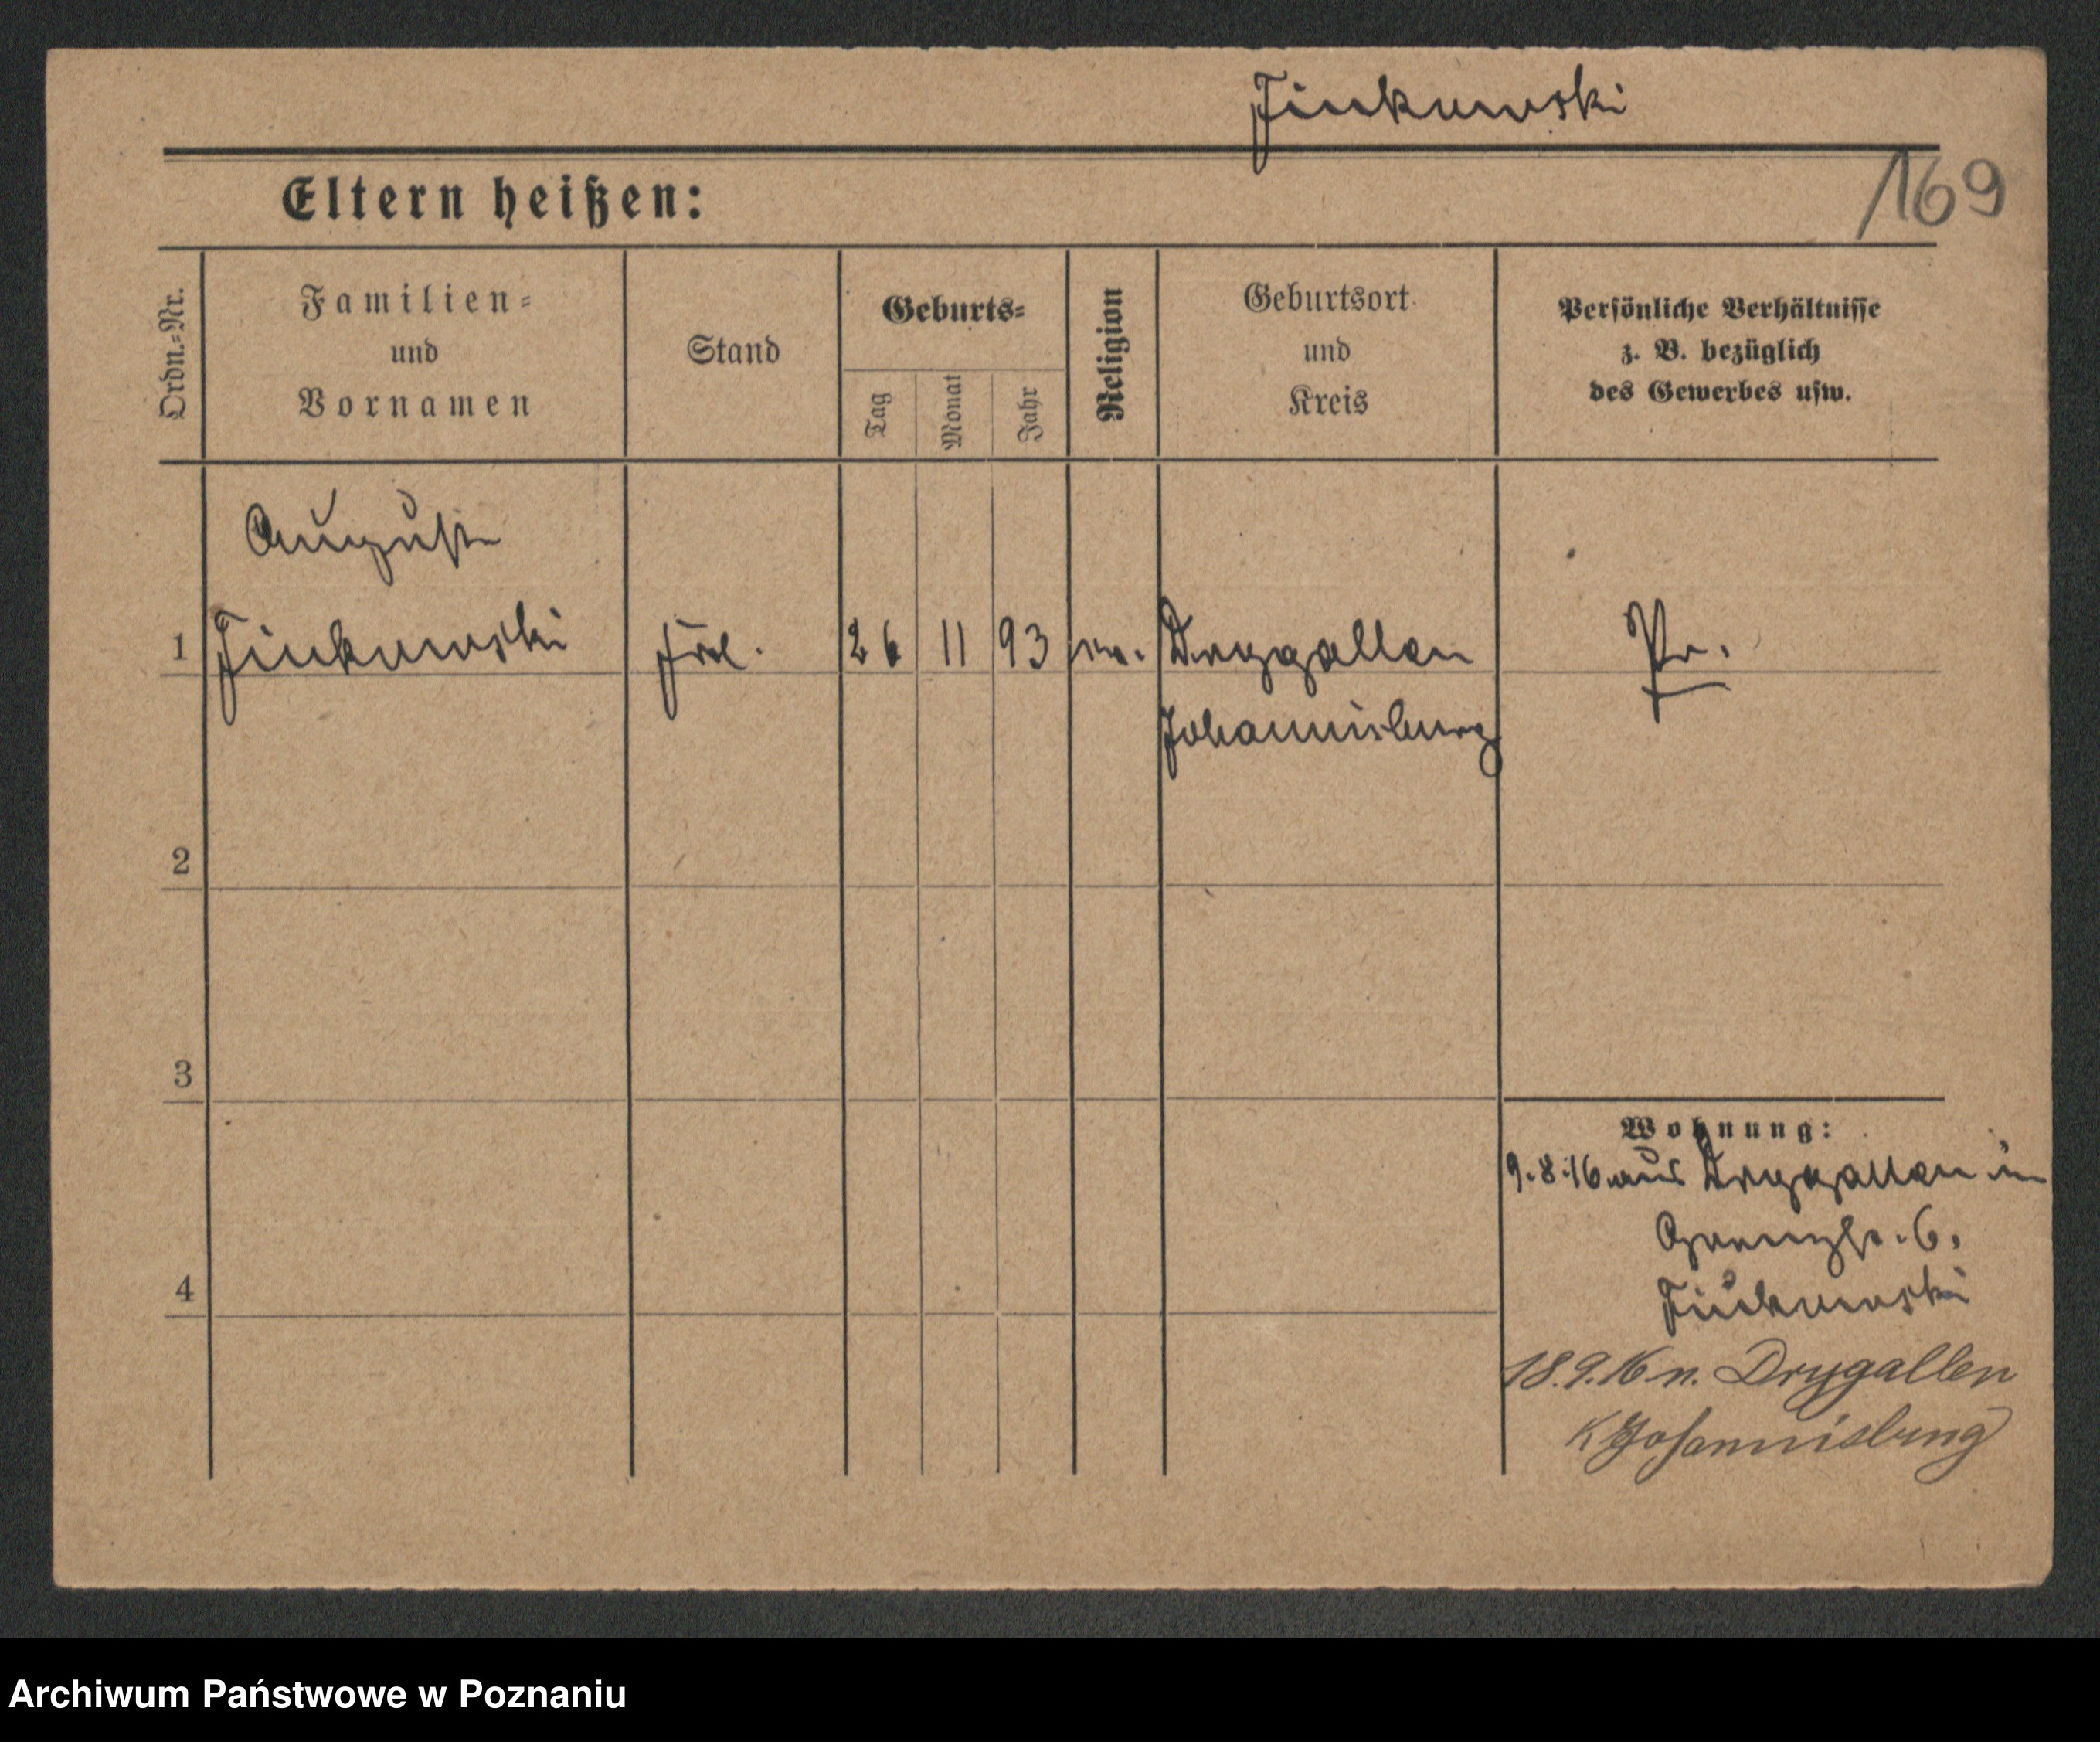 Jinkowski
169
Eltern heißen:
Ordn.=Nr.
Familien=
und
Vornamen
Stand
Geburts=
Tag
Monat
Jahr
Religion
Geburtsort
und
Kreis
Persönliche Verhältnisse
z. B. bezüglich
des Gewerbes usw.
1
Jinkowski
26
11
93
Drygallen
Pr.
Johannisburg
2
3
4
Wohnung:
9.8.16 aus Drygallen in
6.
Jinkowski
18.9.16 n. Drygallen
K Johannisburg
Archiwum Państwowe w Poznaniu